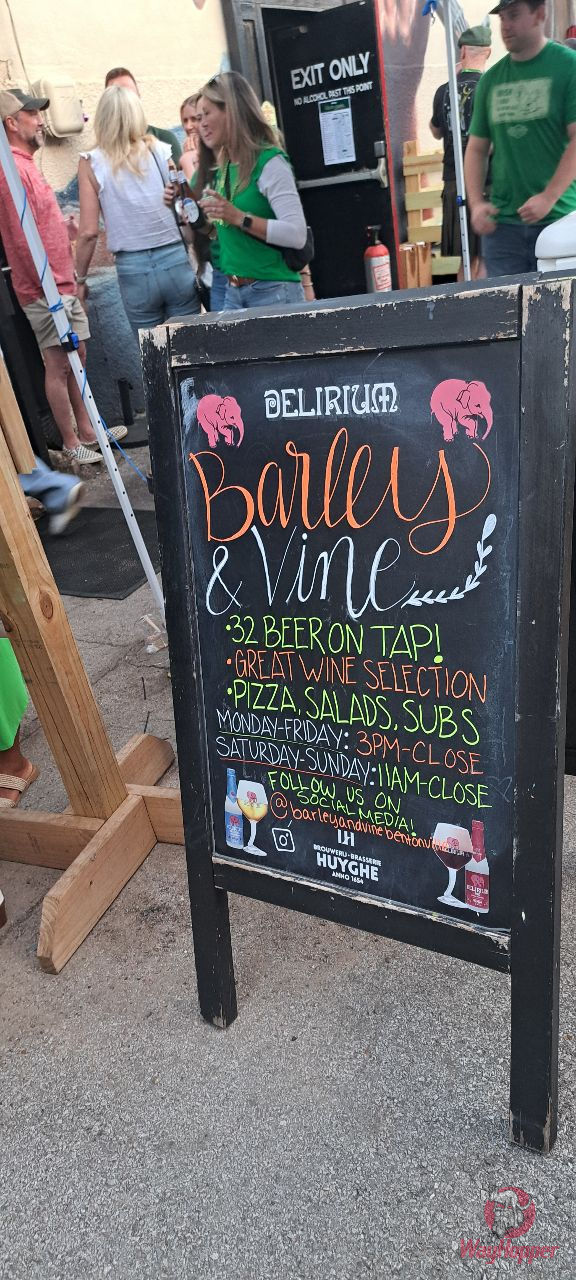 EXIT ONLY
NO ALCOHOL PAST THIS POINT
DELIRIUM
Barley
& Vine
•32 BEER ON TAP!
•GREAT WINE SELECTION
•PIZZA, SALADS, SUBS
MONDAY-FRIDAY: 3PM-CLOSE
SATURDAY-SUNDAY: 11AM-CLOSE
FOLLOW US ON
SOCIAL MEDIA!
@barleyandvinebentonville
BROUWERIJ-BRASSERIE
HUYGHE
ANNO 1654
WayHopper